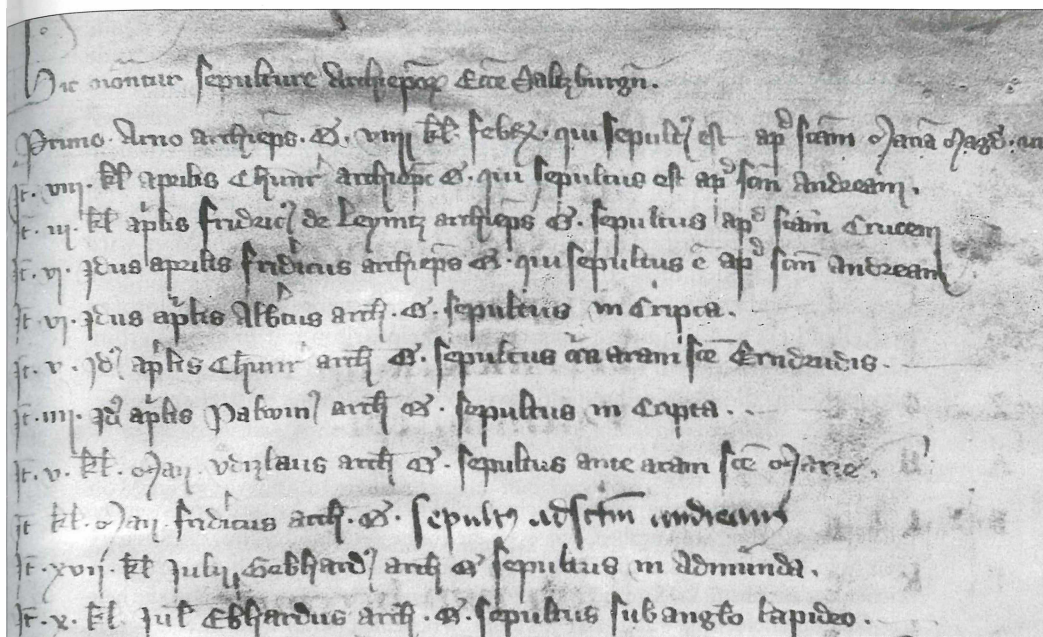 Hic nōntur sepulture Archiep̄oꝝ Ecc̄e Saltzburgn̄.
Primo. Arno archiep̄s. O. viiij kl̄. febr. qui sepult⁹ est ap̄d sc̄am Mariā Magd̄.
It̄. viij. kl̄ aprilis Chunr̄ archiep̄c O. qui sepultus est ap̄d sc̄m Andream.
It̄. iij. kl̄ ap̄lis Fridric⁹ de Leymtz archiep̄s O. sepultus ap̄d sc̄am Crucem
It̄. vj. Jdus aprilis fridicus archiep̄s O. qui sepultus ē ap̄d sc̄m Andream
It̄. vj. Jdus ap̄lis Alb̄tus arch̄. O. sepultus in Cripta.
It̄. v. Jd⁹ ap̄lis Chunr̄ arch̄ O. sepultus aram sc̄e Erndrudis.
It̄. iiij. Jd⁹ ap̄lis Palwin⁹ arch̄ O. sepultus in Cripta.
It̄. v. kl̄. Maij. vdizlaus arch̄ O. sepultus ante aram sc̄e Marie.
It̄ kl̄. Maij fridicus arch̄. O. sepult⁹ ad sc̄tm andream
It̄. xvij. kl̄ Julij Gebhard⁹ arch̄ O sepultus in Admunda.
It̄. x. kl̄ Jul̄ Eb̄hardus arch̄. O. sepultus sub angl̄o lapideo.